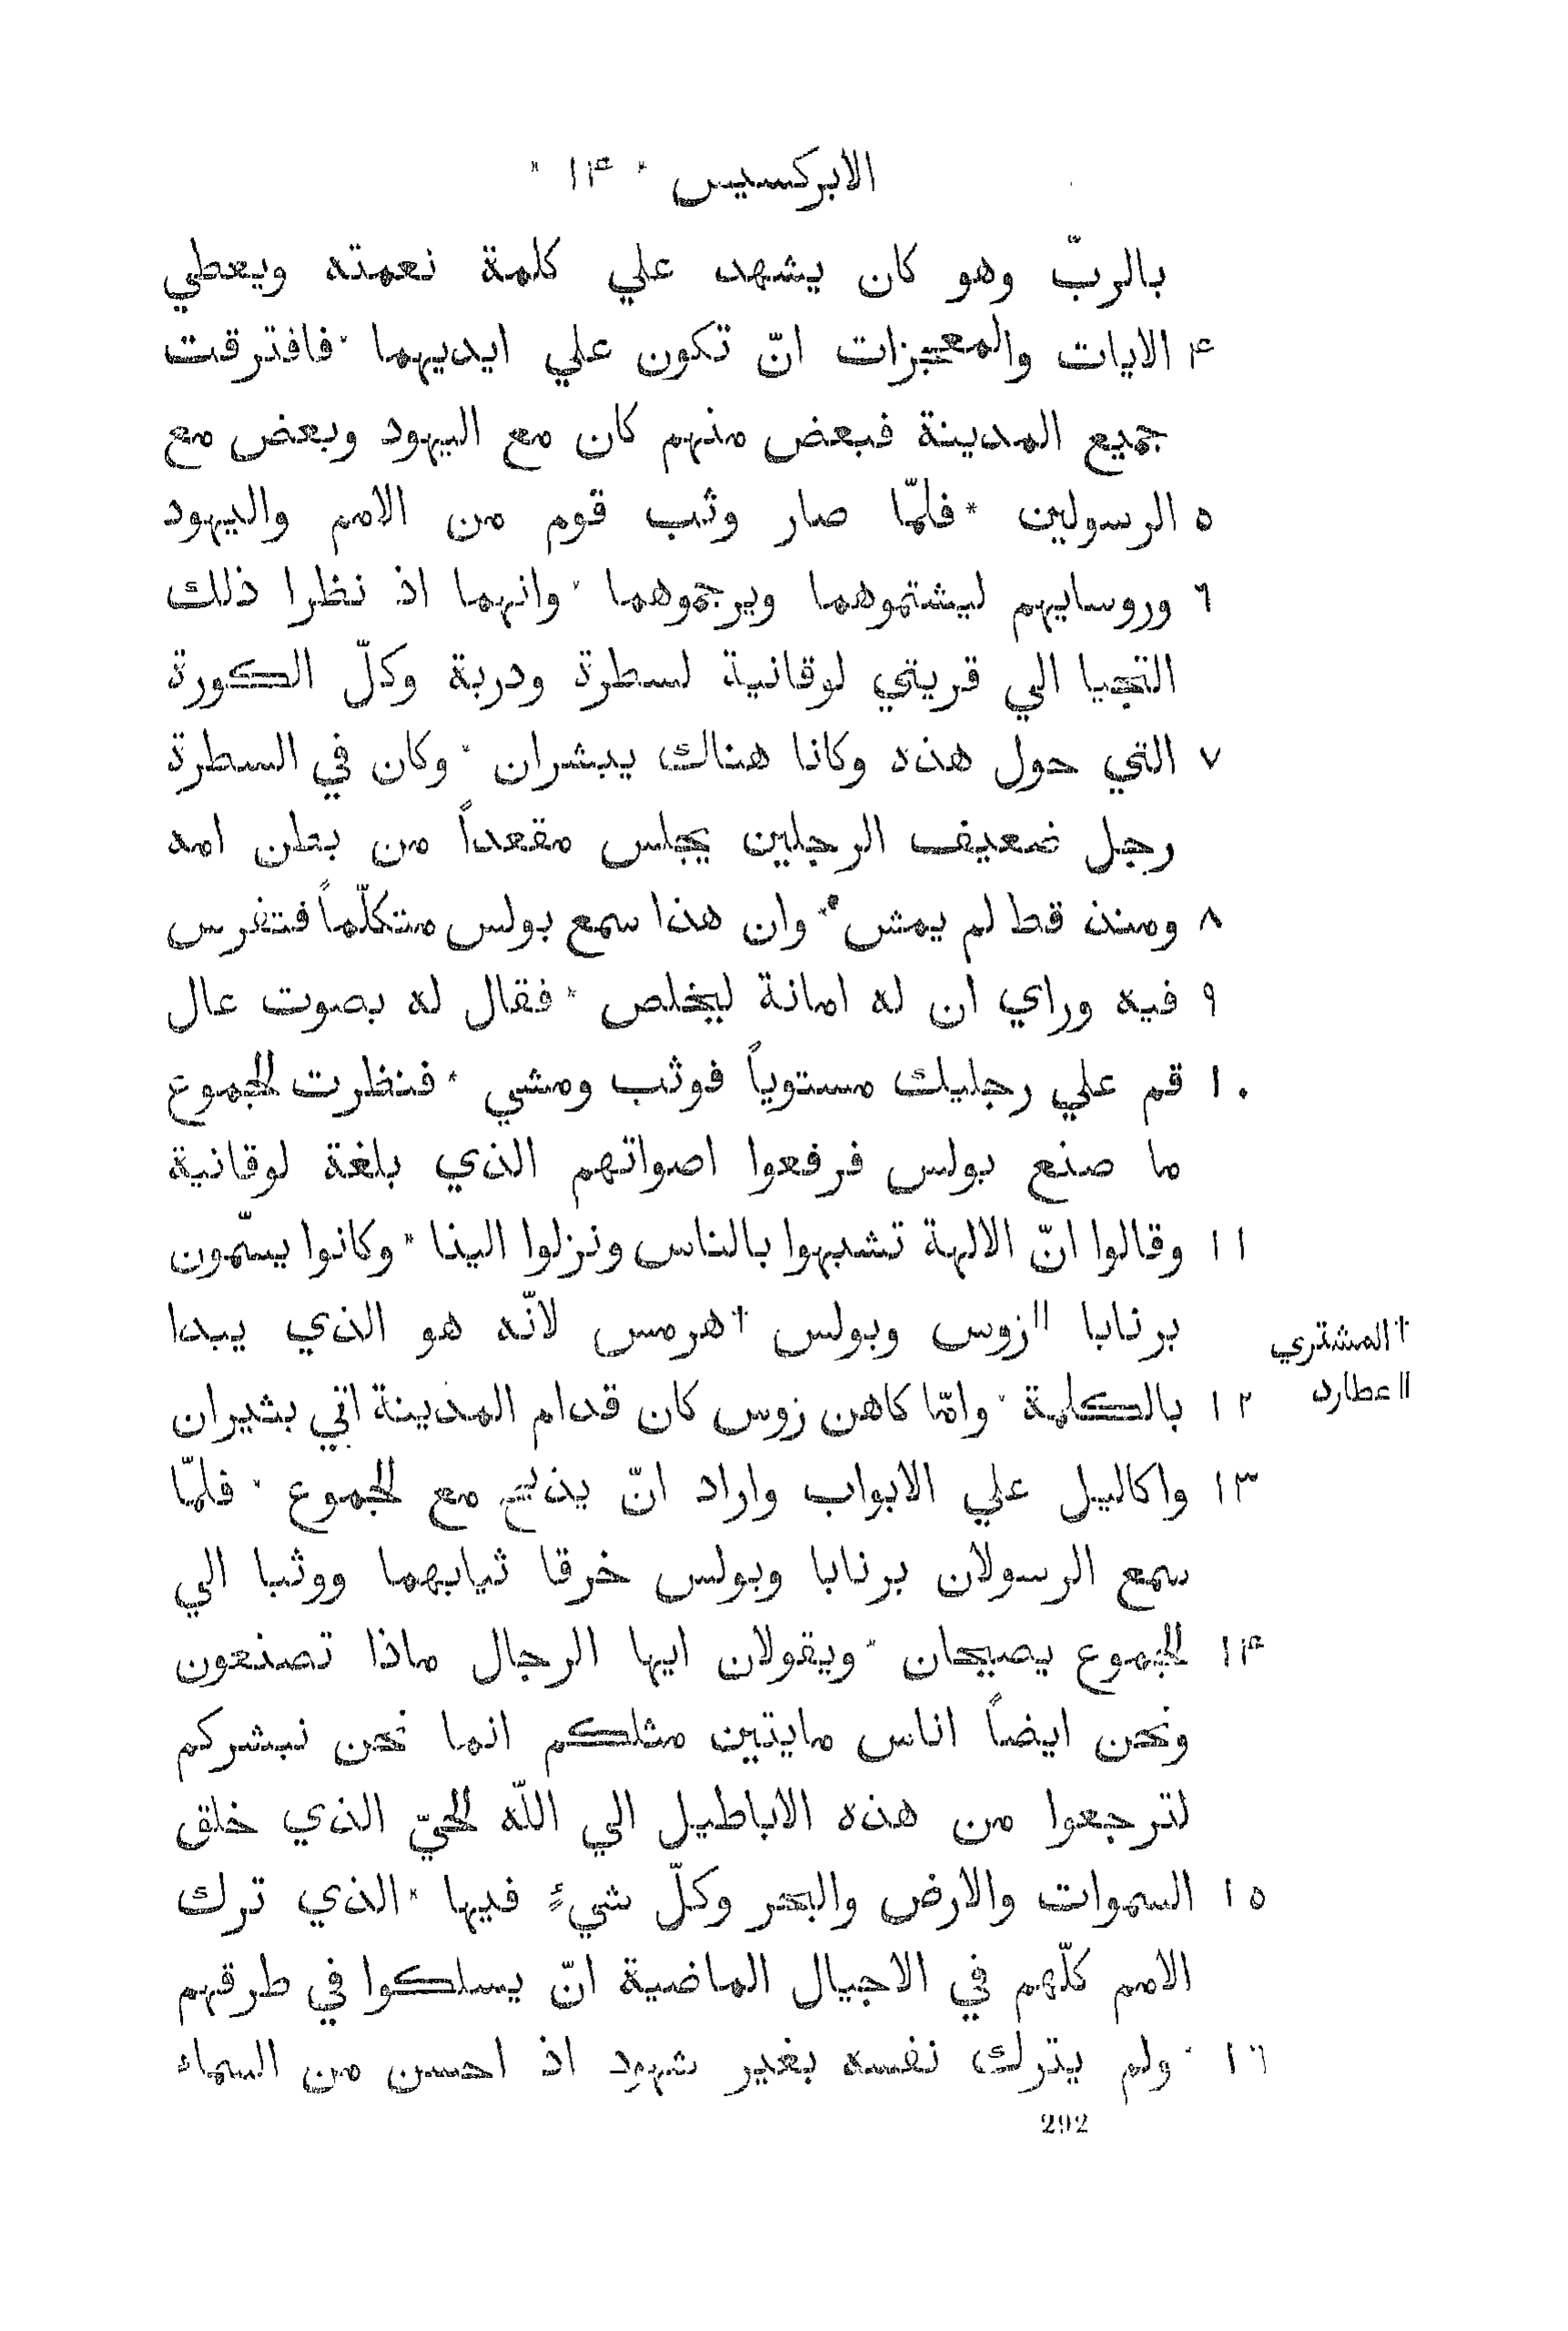 الابركسيس * ١۴ *
بالربّ وهو كان يشهد علي كلمة نعمته ويعطي
۴ الايات والمعجزات انّ تكون علي ايديهما * فافترقت
جميع المدينة فبعض منهم كان مع اليهود وبعض مع
٥ الرسولين * فلمّا صار وثب قوم من الامم واليهود
٦ وروسايهم ليشتموهما ويرجموهما * وانهما اذ نظرا ذلك
التجيا الي قريتي لوقانية لسطرة ودربة وكلّ الكورة
٧ التي حول هذه وكانا هناك يبشران * وكان في السطرة
رجل ضعيف الرجلين يجلس مقعداً من بطن امه
٨ ومنذ قط لم يمش * وان هذا سمع بولس متكلّماً فتفرس
٩ فيه وراي ان له امانة ليخلص * فقال له بصوت عال
١٠ قم علي رجليك مستوياً فوثب ومشي * فنظرت الجموع
ما صنع بولس فرفعوا اصواتهم الذي بلغة لوقانية
١١ وقالوا انّ الالهة تشبهوا بالناس ونزلوا الينا * وكانوا يسمّون
برنابا ||زوس وبولس †هرمس لانّه هو الذي يبدا
†المشتري
١٢ بالكلمة * وامّا كاهن زوس كان قدام المدينة اتي بثيران
||عطارد
١٣ واكاليل علي الابواب واراد انّ يذبح مع الجموع * فلمّا
سمع الرسولان برنابا وبولس خرقا ثيابهما ووثبا الي
١۴ الجموع يصيحان * ويقولان ايها الرجال ماذا تصنعون
ونحن ايضاً اناس مايتين مثلكم انما نحن نبشركم
لترجعوا من هذه الاباطيل الي اللّه الحيّ الذي خلق
١٥ السموات والارض والبحر وكلّ شيءٍ فيها * الذي ترك
الامم كلّهم في الاجيال الماضية انّ يسلكوا في طرقهم
١٦ * ولم يترك نفسه بغير شهود اذ احسن من السماء
292